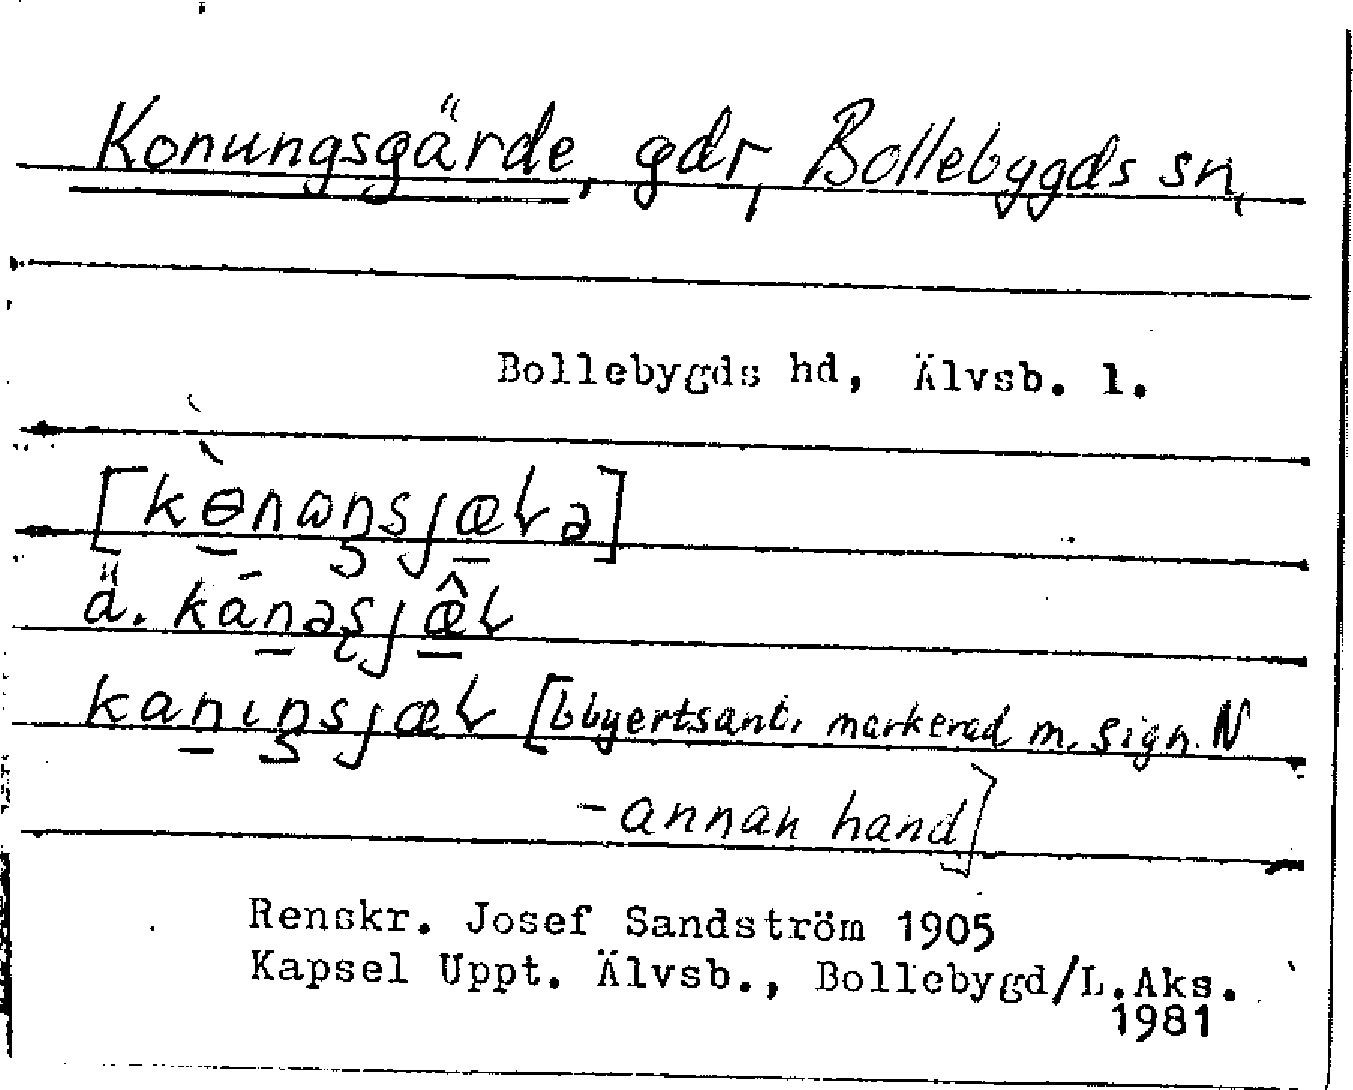 Konungsgärde, gdr, Bollebygds sn,
Bollebygds hd, Älvsb. l.
[kɵ̀nɷŋsjæɽə]
ä. kánəsjæ̂ɽ
kanɩŋsjæɽ [blyertsant. markerad m. sign. N
- annan hand]
Renskr. Josef Sandström 1905
Kapsel Uppt. Älvsb., Bollebygd/L.Aks.
1981